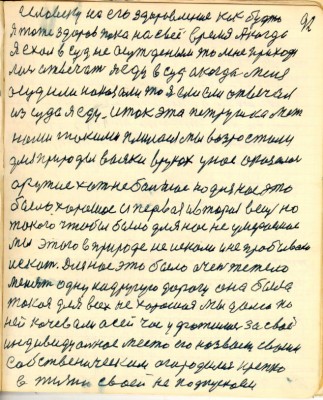 человеку на его здоровление как будто
я тоже здоров пока на свей время я когда
я ехал в суд не осужденым то мне приходи
отвечат я еду в суд а когда меня
осудили показали то я если отвечал
из суда я еду. и ток эта петрушка
нами такими мы возростали
для природы всяки в руках у нас оказался
другие хотя не большие но для нас это
было хорошое и первая история вещ но
такого чтобы было для нас не умирание
мы этого в природе не искали и не пробывали
искат. Для нас это было очен тежело
менят одну на другую дорогу она была
такая для всех не хорошая мы долго по
ней кочевали а сей час удержались за своё
индивидуалное место его назвали своим
собственическим огородили крепко
в жизнь своей не подпускаем
92